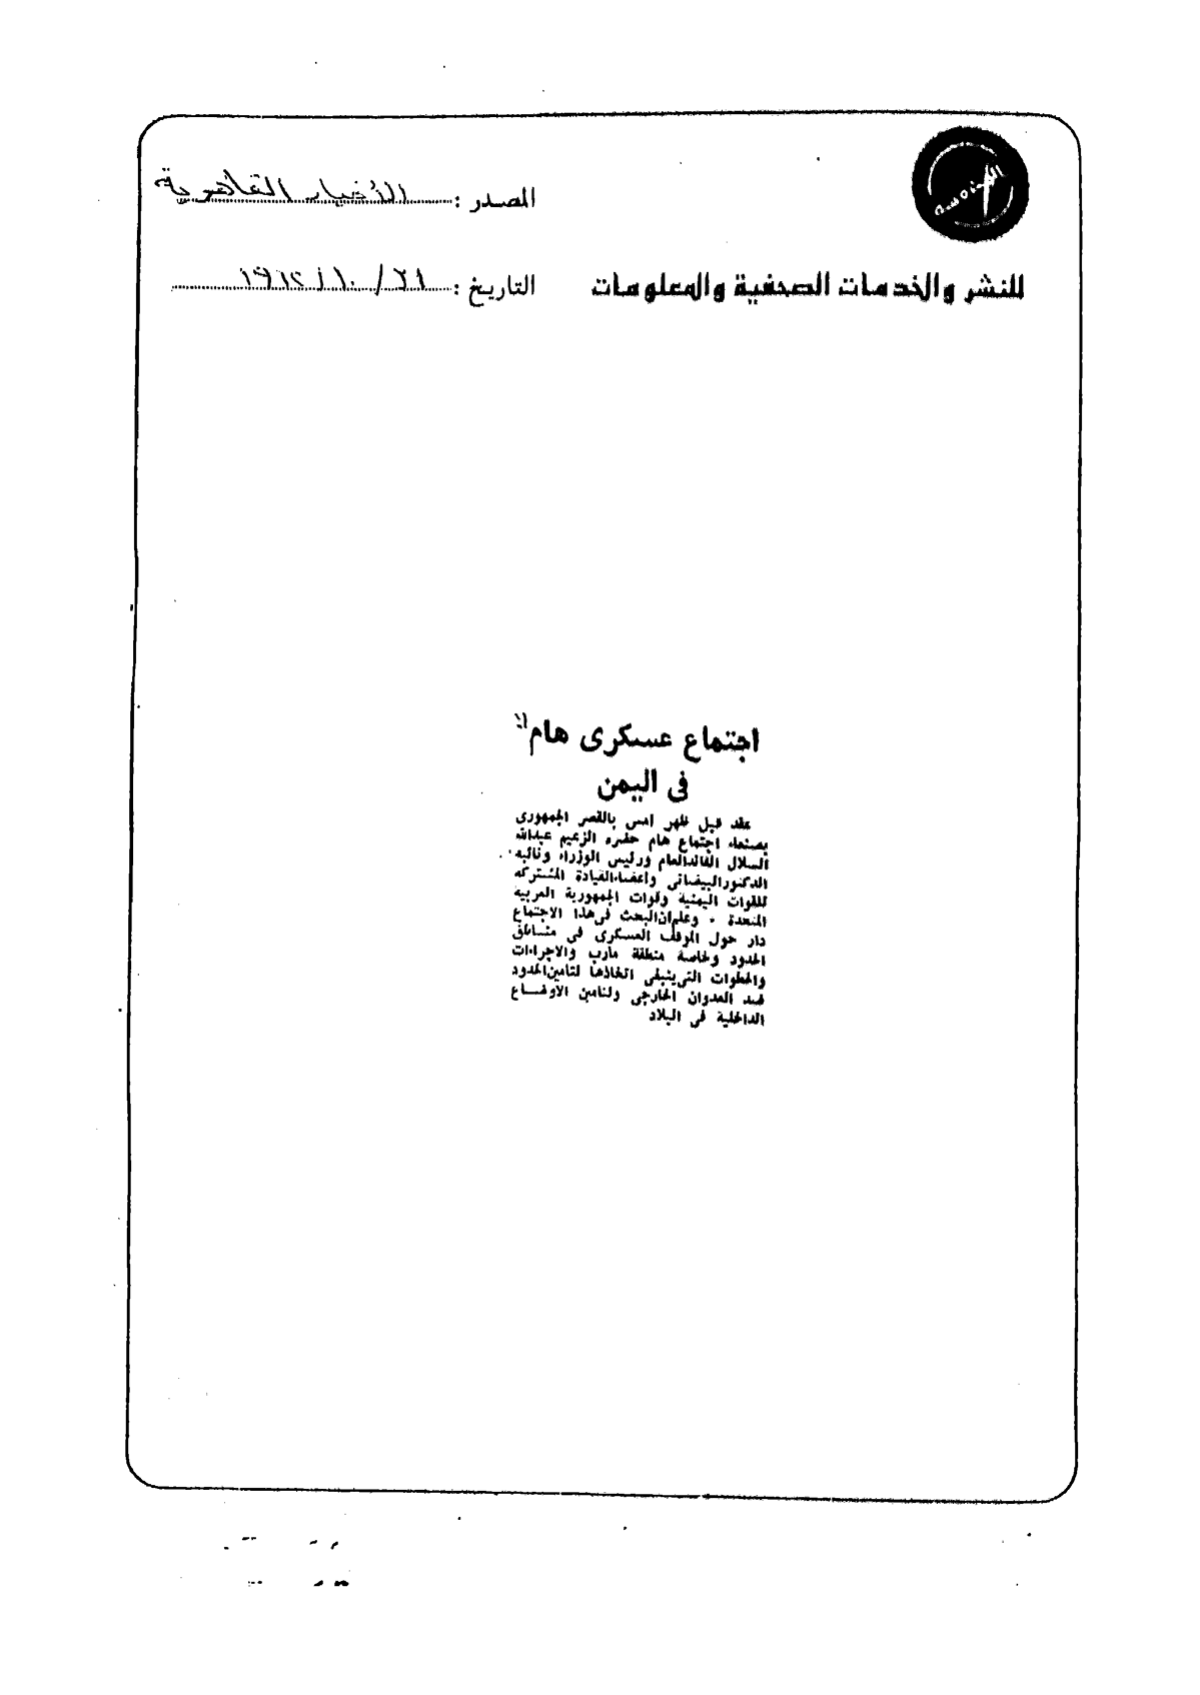 المصدر : الأخبار القاهرية
للنشر والخدمات الصحفية والمعلومات
التاريخ : ٢١ / ١٠ / ١٩٦٢
اجتماع عسكرى هام
فى اليمن
عقد قبل ظهر امس بالقصر الجمهورى
بصنعاء اجتماع هام حضره الزعيم عبدالله
السلال القائدالعام ورئيس الوزراء ونائبه
الدكتورالبيضانى وأعضاءالقيادة المشتركه
للقوات اليمنية وقوات الجمهورية العربيه
المتحدة . وعلم‌ان‌البحث فى‌هذا الاجتماع
دار حول الموقف العسكرى فى مناطق
الحدود وخاصة منطقة مأرب والاجراءات
والخطوات التى‌ينبغى اتخاذها لتأمين‌الحدود
ضد العدوان الخارجى ولتامين الاوضاع
الداخلية فى البلاد